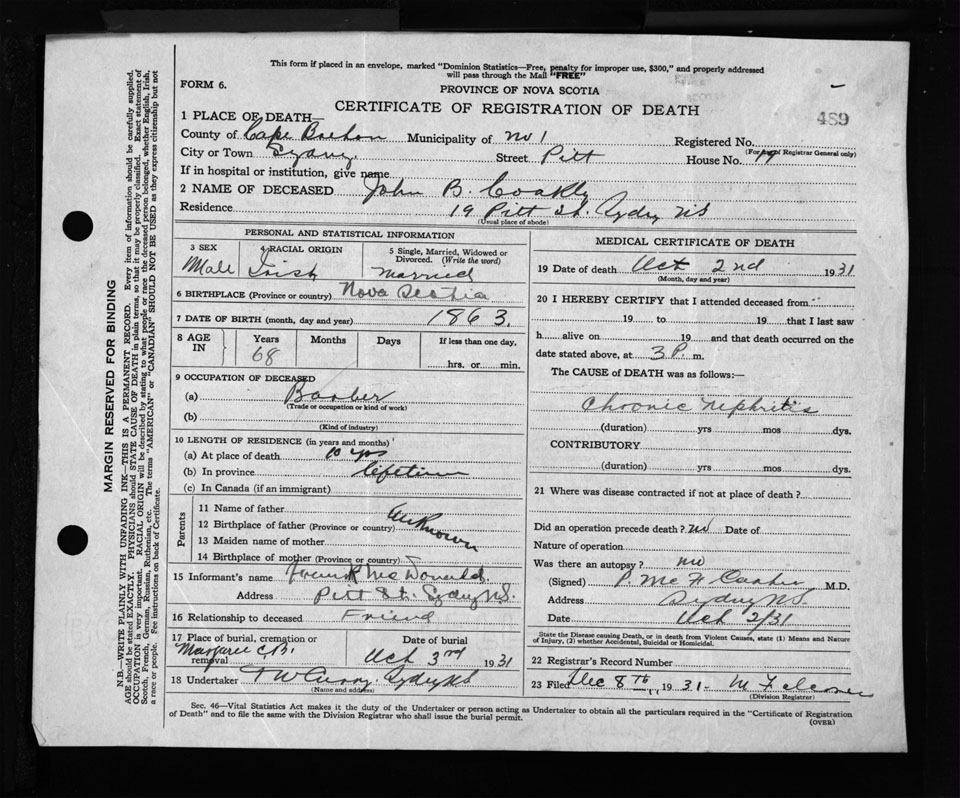 This form if placed in an envelope, marked "Dominion Statistics—Free, penalty for improper use, $300," and properly addressed
will pass through the Mail "FREE"
FORM 6.
PROVINCE OF NOVA SCOTIA
CERTIFICATE OF REGISTRATION OF DEATH
489
1 PLACE OF DEATH—
County of Cape Breton Municipality of No 1 Registered No.
(For use of Registrar General only)
City or Town Sydney Street Pitt House No. 19
If in hospital or institution, give name
2 NAME OF DECEASED John B. Coakly
Residence 19 Pitt St. Sydney NS
(Usual place of abode)
PERSONAL AND STATISTICAL INFORMATION
3 SEX 4 RACIAL ORIGIN 5 Single, Married, Widowed or Divorced. (Write the word)
Male Irish Married
6 BIRTHPLACE (Province or country) Nova Scotia
7 DATE OF BIRTH (month, day and year) 1863.
8 AGE IN Years Months Days If less than one day,
68 hrs. or min.
9 OCCUPATION OF DECEASED
(a) Barber
(Trade or occupation or kind of work)
(b)
(Kind of industry)
10 LENGTH OF RESIDENCE (in years and months)
(a) At place of death 10 yrs
(b) In province Lifetime
(c) In Canada (if an immigrant)
Parents
11 Name of father
12 Birthplace of father (Province or country) Unknown
13 Maiden name of mother
14 Birthplace of mother (Province or country)
15 Informant's name Frank McDonald.
Address Pitt St. Sydney N.S.
16 Relationship to deceased Friend
17 Place of burial, cremation or removal Margaree C.B. Date of burial Oct 3rd 1931
18 Undertaker Sydney NS
(Name and address)
MEDICAL CERTIFICATE OF DEATH
19 Date of death Oct 2nd 1931
(Month, day and year)
20 I HEREBY CERTIFY that I attended deceased from
19 to 19 that I last saw
h alive on 19 and that death occurred on the
date stated above, at 3 P. m.
The CAUSE of DEATH was as follows:—
Chronic Nephritis
(duration) yrs mos dys.
CONTRIBUTORY
(duration) yrs mos dys.
21 Where was disease contracted if not at place of death?
Did an operation precede death? no Date of
Nature of operation
Was there an autopsy? no
(Signed) M.D.
Address Sydney N.S.
Date Oct 2/31
State the Disease causing Death, or in death from Violent Causes, state (1) Means and Nature
of Injury, (2) whether Accidental, Suicidal or Homicidal.
22 Registrar's Record Number
23 Filed Dec 8th 1931-
(Division Registrar)
Sec. 46—Vital Statistics Act makes it the duty of the Undertaker or person acting as Undertaker to obtain all the particulars required in the "Certificate of Registration
of Death" and to file the same with the Division Registrar who shall issue the burial permit.
(OVER)
MARGIN RESERVED FOR BINDING
N.B.—WRITE PLAINLY WITH UNFADING INK—THIS IS A PERMANENT RECORD. Every item of information should be carefully supplied.
AGE should be stated EXACTLY. PHYSICIANS should STATE CAUSE OF DEATH in plain terms, so that it may be properly classified. Exact statement of
OCCUPATION is very important. RACIAL ORIGIN will be described by stating to what people or race the deceased person belonged, whether English, Irish,
Scotch, French, German, Russian, Ruthenian, etc. The terms "AMERICAN" or "CANADIAN" SHOULD NOT BE USED as they express citizenship but not
a race or people. See instructions on back of Certificate.